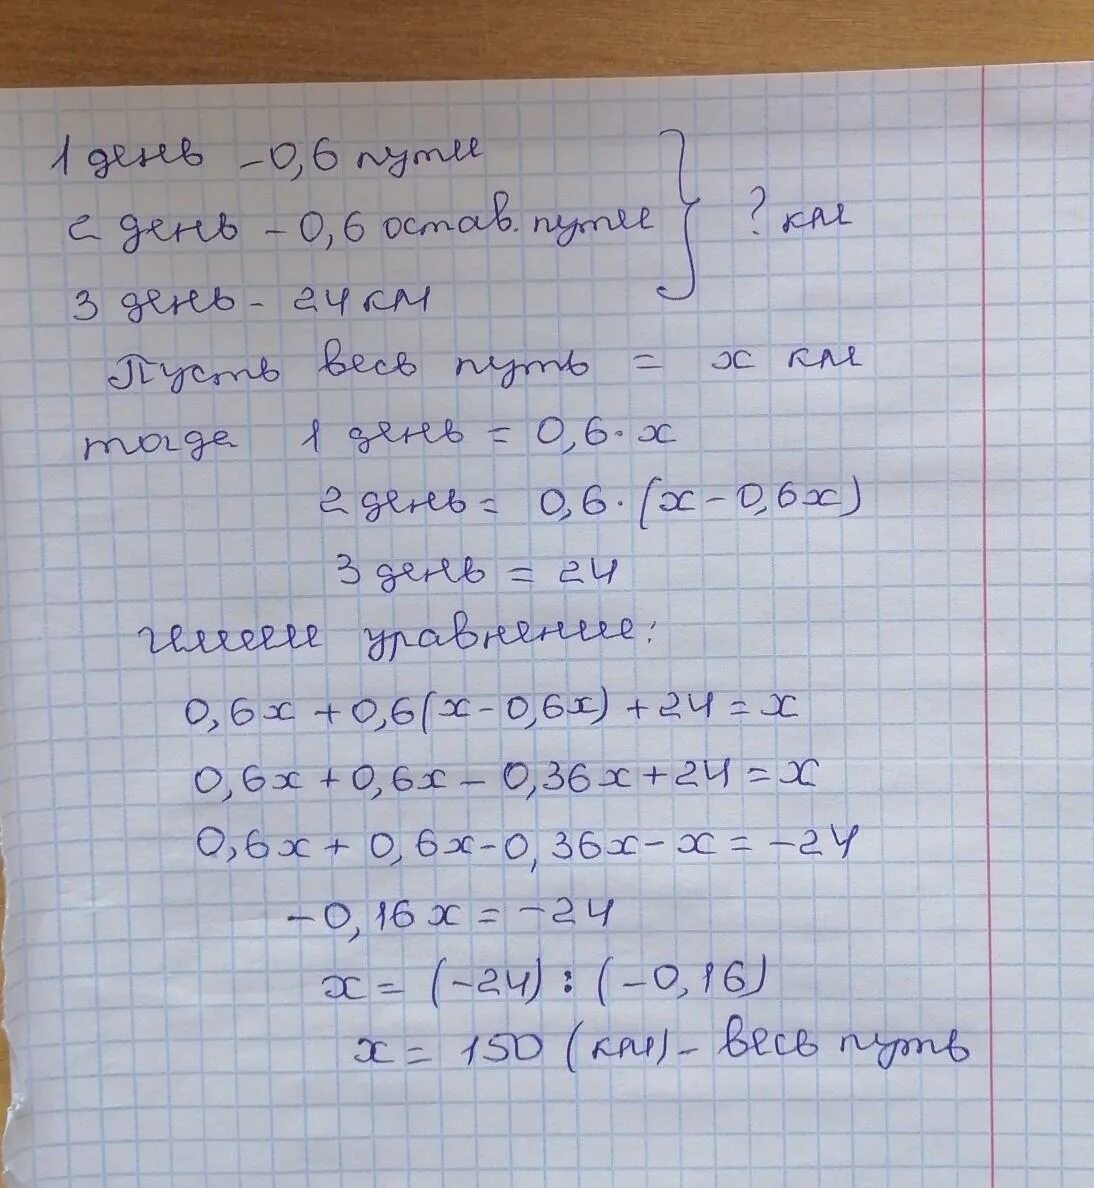 1 день - 0,6 пути
2 день - 0,6 остав. пути } ? км
3 день - 24 км
Пусть весь путь = x км
тогда 1 день = 0,6·x
2 день = 0,6·(x-0,6x)
3 день = 24
имеем уравнение:
0,6x+0,6(x-0,6x)+24=x
0,6x+0,6x-0,36x+24=x
0,6x+0,6x-0,36x-x=-24
-0,16x=-24
x=(-24):(-0,16)
x=150 (км)- весь путь